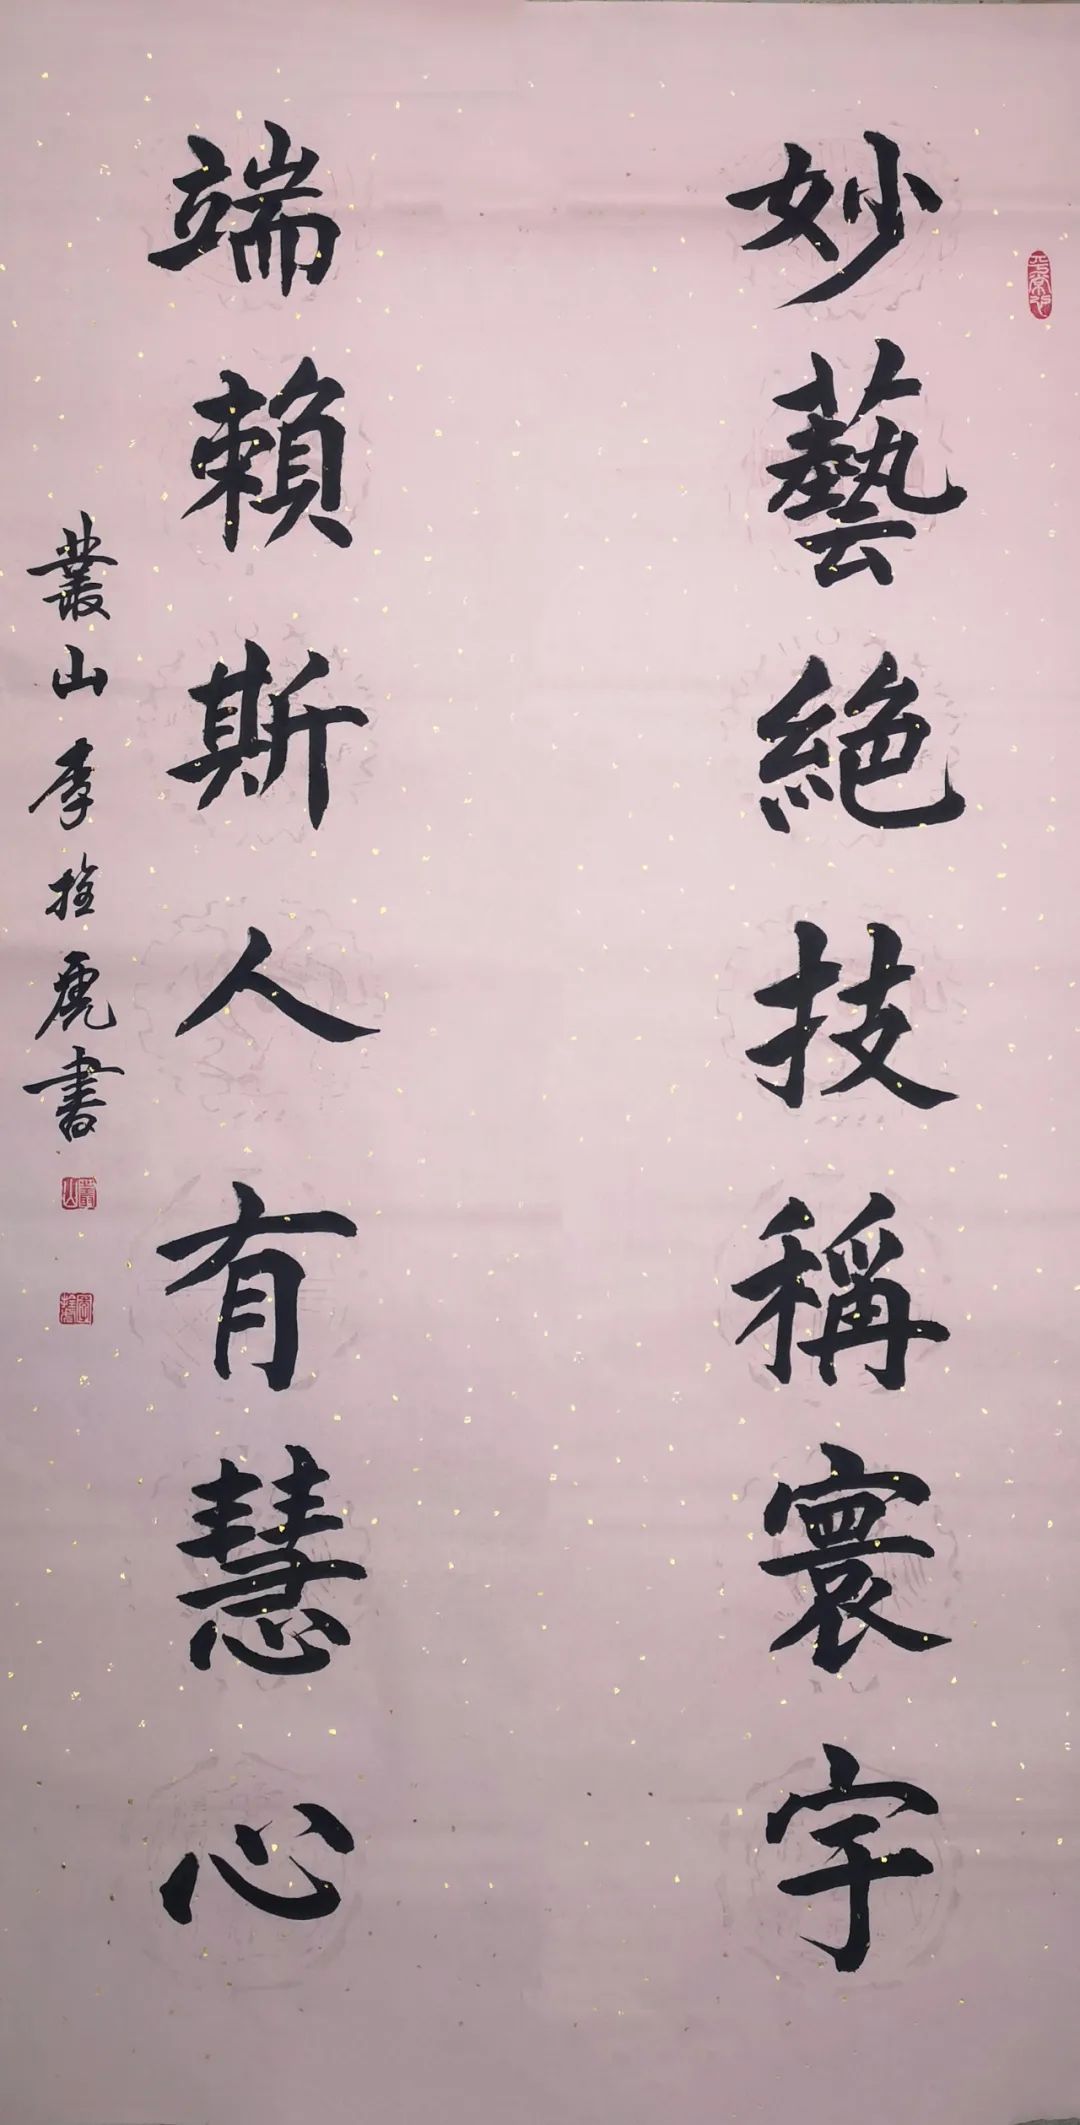 妙藝絕技稱寰宇
端賴斯人有慧心
叢山李拴虎書